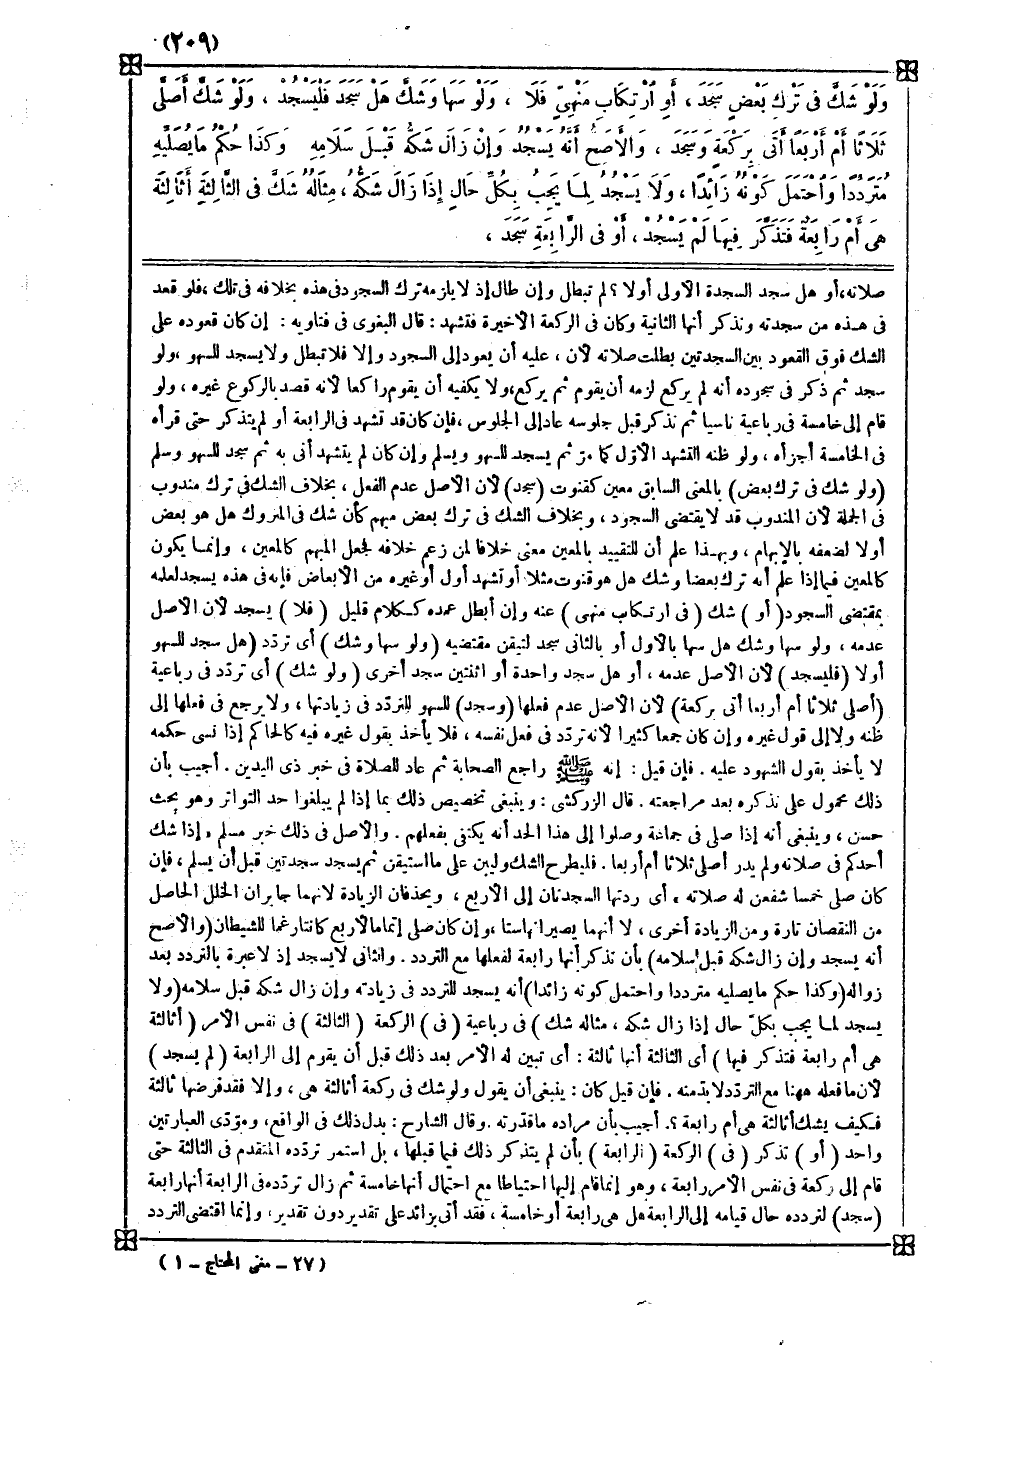 (٢٠٩)
وَلَوْ شَكَّ فى تَرْكِ بَعْضٍ سَجَدَ ، أَوِ ارْتِكَابِ مَنْهِىٍّ فَلَا ، وَلَوْ سَهَا وَشَكَّ هَلْ سَجَدَ فَلْيَسْجُدْ ، وَلَوْ شَكَّ أَصَلَّى
ثَلَاثًا أَمْ أَرْبَعًا أَتَى بِرَكْعَةٍ وَسَجَدَ ، وَالْأَصَحُّ أَنَّهُ يَسْجُدُ وَإِنْ زَالَ شَكُّهُ قَبْلَ سَلَامِهِ وَكَذَا حُكْمُ مَا يُصَلِّيهِ
مُتَرَدِّدًا وَاحْتَمَلَ كَوْنُهُ زَائِدًا ، وَلَا يَسْجُدُ لِمَا يَجِبُ بِكُلِّ حَالٍ إِذَا زَالَ شَكُّهُ ، مِثَالُهُ شَكَّ فى الثَّالِثَةِ أَثَالِثَةٌ
هِىَ أَمْ رَابِعَةٌ فَتَذَكَّرَ فِيهَا لَمْ يَسْجُدْ ، أَوْ فى الرَّابِعَةِ سَجَدَ ،
صلاته، أو هل سجد السجدة الأولى أولا ؟ لم تبطل وإن طال إذ لا يلزمه ترك السجود فى هذه بخلافه فى تلك ، فلو قعد
فى هذه من سجدته وتذكر أنها الثانية وكان فى الركعة الأخيرة فتشهد : قال البغوى فى فتاويه : إن كان قعوده على
الشك فوق القعود بين السجدتين بطلت صلاته لأن ، عليه أن يعود إلى السجود وإلا فلا تبطل ولا يسجد للسهو ، ولو
سجد ثم ذكر فى سجوده أنه لم يركع لزمه أن يقوم ثم يركع، ولا يكفيه أن يقوم راكعا لأنه قصد بالركوع غيره ، ولو
قام إلى خامسة فى رباعية ناسيا ثم تذكر قبل جلوسه عاد إلى الجلوس ، فإن كان قد تشهد فى الرابعة أو لم يتذكر حتى قرأه
فى الخامسة أجزأه ، ولو ظنه التشهد الأول كما مر ثم يسجد للسهو ويسلم وإن كان لم يتشهد أتى به ثم سجد للسهو وسلم
(ولو شك فى ترك بعض) بالمعنى السابق معين كقنوت (سجد) لأن الأصل عدم الفعل ، بخلاف الشك فى ترك مندوب
فى الجملة لأن المندوب قد لا يقتضى السجود ، وبخلاف الشك فى ترك بعض مبهم كأن شك فى المتروك هل هو بعض
أولا لضعفه بالإبهام ، وبهذا علم أن للتقييد بالمعين معنى خلافا لمن زعم خلافه فجعل المبهم كالمعين ، وإنما يكون
كالمعين فيما إذا علم أنه ترك بعضا وشك هل هو قنوت مثلا أو تشهد أول أو غيره من الأبعاض فإنه فى هذه يسجد لعلمه
بمقتضى السجود ( أو ) شك ( فى ارتكاب منهى ) عنه وإن أبطل عمده ككلام قليل ( فلا ) يسجد لأن الأصل
عدمه ، ولو سها وشك هل سها بالأول أو بالثانى سجد لتيقن مقتضيه (ولو سها وشك ) أى تردّد (هل سجد للسهو
أولا (فليسجد ) لأن الأصل عدمه ، أو هل سجد واحدة أو اثنتين سجد أخرى ( ولو شك ) أى تردّد فى رباعية
(أصلى ثلاثا أم أربعا أتى بركعة) لأن الأصل عدم فعلها (وسجد) للسهو للتردّد فى زيادتها ، ولا يرجع فى فعلها إلى
ظنه ولا إلى قول غيره وإن كان جمعا كثيرا لأنه تردّد فى فعل نفسه ، فلا يأخذ بقول غيره فيه كالحاكم إذا نسى حكمه
لا يأخذ بقول الشهود عليه . فإن قيل : إنه ﷺ راجع الصحابة ثم عاد للصلاة فى خبر ذى اليدين . أجيب بأن
ذلك محمول على تذكره بعد مراجعته . قال الزركشى : وينبغى تخصيص ذلك بما إذا لم يبلغوا حد التواتر وهو بحث
حسن ، وينبغى أنه إذا صلى فى جماعة وصلوا إلى هذا الحد أنه يكتفى بفعلهم . والأصل فى ذلك خبر مسلم « إذا شك
أحدكم فى صلاته ولم يدر أصلى ثلاثا أم أربعا . فليطرح الشك وليبن على ما استيقن ثم يسجد سجدتين قبل أن يسلم ، فإن
كان صلى خمسا شفعن له صلاته » أى ردتها السجدتان إلى الأربع ، ويحذفان الزيادة لأنهما جابران الخلل الحاصل
من النقصان تارة ومن الزيادة أخرى ، لا أنهما يصيرانها ستا ، وإن كان صلى إتماما لأربع كانتا رغما للشيطان (والأصح
أنه يسجد وإن زال شكه قبل سلامه) بأن تذكر أنها رابعة لفعلها مع التردد . والثانى لا يسجد إذ لا عبرة بالتردد بعد
زواله (وكذا حكم ما يصليه مترددا واحتمل كونه زائدا) أنه يسجد للتردد فى زيادته وإن زال شكه قبل سلامه (ولا
يسجد لما يجب بكلّ حال إذا زال شكه ، مثاله شك ) فى رباعية ( فى ) الركعة ( الثالثة ) فى نفس الأمر ( أثالثة
هى أم رابعة فتذكر فيها ) أى الثالثة أنها ثالثة : أى تبين له الأمر بعد ذلك قبل أن يقوم إلى الرابعة ( لم يسجد )
لأن ما فعله ههنا مع التردّد لا بدّ منه . فإن قيل كان : ينبغى أن يقول ولو شك فى ركعة أثالثة هى ، وإلا فقد فرضها ثالثة
فكيف يشك أثالثة هى أم رابعة ؟. أجيب بأن مراده ما قدرته . وقال الشارح : بدل ذلك فى الواقع، ومؤدّى العبارتين
واحد ( أو ) تذكر ( فى ) الركعة ( الرابعة ) بأن لم يتذكر ذلك فيما قبلها ، بل استمر تردده المتقدم فى الثالثة حتى
قام إلى ركعة فى نفس الأمر رابعة ، وهو إنما قام إليها احتياطا مع احتمال أنها خامسة ثم زال تردّده فى الرابعة أنها رابعة
(سجد) لتردده حال قيامه إلى الرابعة هل هى رابعة أو خامسة ، فقد أتى بزائد على تقدير دون تقدير، وإنما اقتضى التردد
(٢٧ - مغنى المحتاج - ١ )